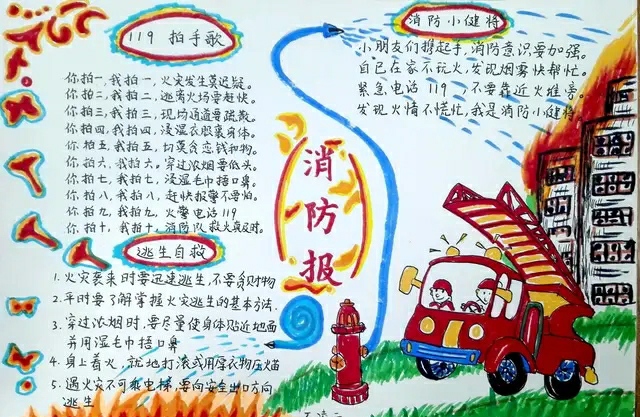 119 拍手歌
你拍一，我拍一，火灾发生莫迟疑。
你拍二，我拍二，逃离火场要赶快。
你拍三，我拍三，现场通道要疏散。
你拍四，我拍四，浸湿衣服裹身体。
你拍五，我拍五，切莫贪恋钱和物。
你拍六，我拍六。穿过浓烟要低头。
你拍七，我拍七，浸湿毛巾捂口鼻。
你拍八，我拍八，赶快报警不要怕。
你拍九，我拍九，火警电话119
你拍十，我拍十，消防队救火真及时。
逃生自救
1. 火灾袭来时要迅速逃生，不要贪财物
2. 平时要了解掌握火灾逃生的基本方法.
3. 穿过浓烟时，要尽量使身体贴近地面
并用湿毛巾捂口鼻
4. 身上着火，就地打滚或用厚衣物压火苗
5. 遇火灾不可乘电梯，要向安全出口方向
逃生
消防报
消防小健将
小朋友们携起手，消防意识要加强。
自己在家不玩火，发现烟雾快帮忙。
紧急电话 119，不要靠近火堆旁。
发现火情不慌忙，我是消防小健将